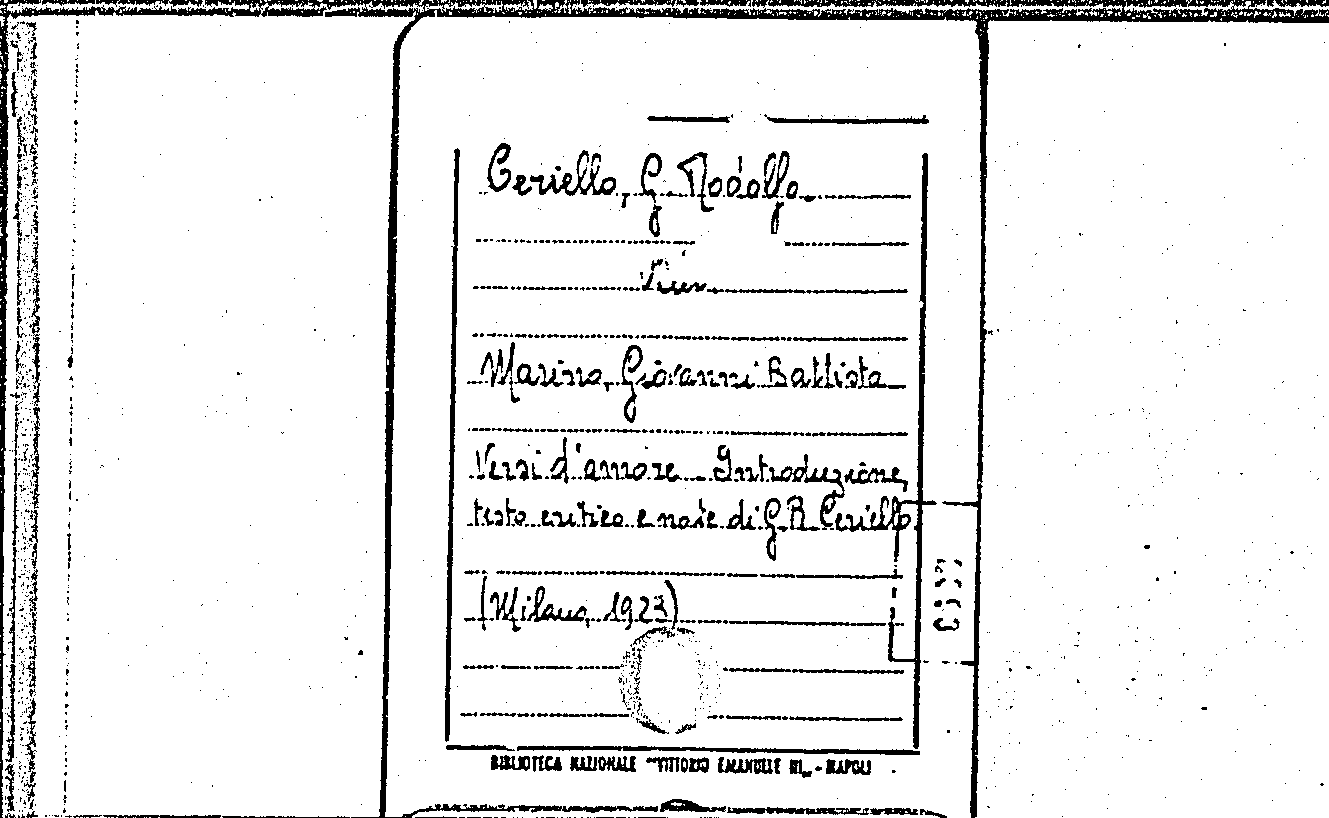 Ceriello, G. Rodolfo.
Marino, Giovanni Battista
Versi d'amore. Introduzione,
testo critico e note di G. R. Ceriello.
(Milano, 1923)
BIBLIOTECA NAZIONALE "VITTORIO EMANUELE III„ - NAPOLI